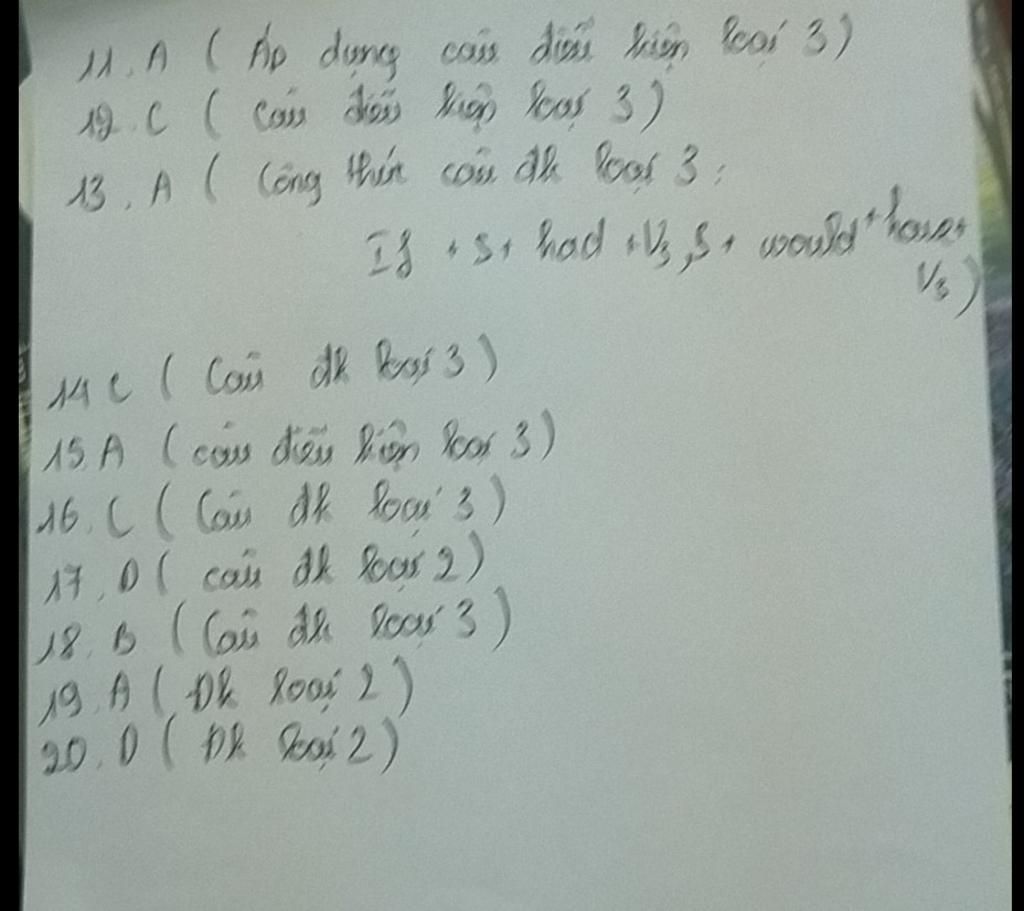 11. A ( Áp dụng câu điều kiện loại 3)
12. C ( Câu điều kiện loại 3)
13. A ( Công thức câu đk loại 3:
If + S + had + V3, S + would + have +
V3)
14 C ( Câu đk loại 3)
15. A ( câu điều kiện loại 3)
16. C ( Câu đk loại 3)
17. D ( câu đk loại 2)
18. B ( Câu đk loại 3)
19. A ( Đk loại 2)
20. D ( Đk loại 2)